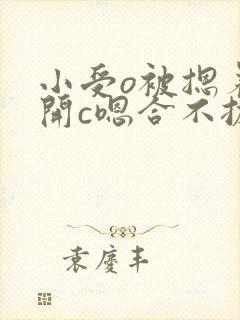 小受o被摁着
開c嗯合不拢
袁慶丰